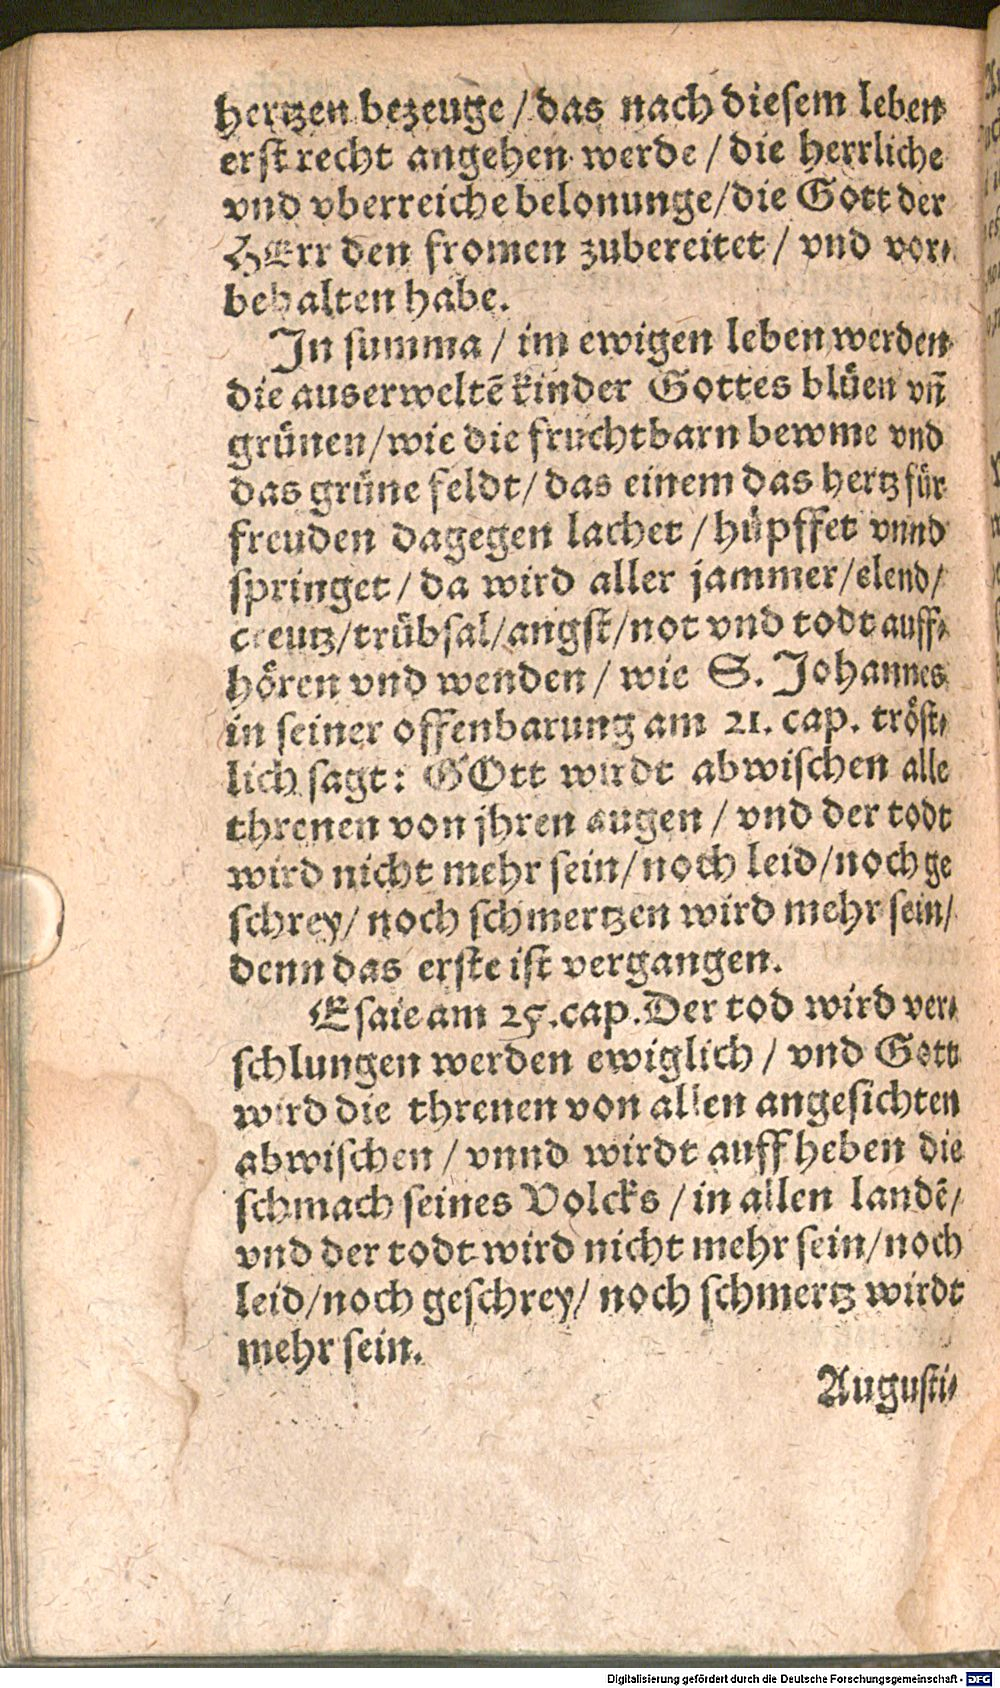 hertzen bezeuge / das nach diesem leben
erst recht angehen werde / die herrliche
vnd vberreiche belonunge / die Gott der
HErr den fromen zubereitet / vnd vor⸗
behalten habe.
In summa / im ewigen leben werden
die auserweltē kinder Gottes blüen vn̄
grünen / wie die fruchtbarn bewme vnd
das grüne feldt / das einem das hertz für
freuden dagegen lachet / hüpffet vnnd
springet / da wird aller jammer / elend /
creutz / trübsal / angst / not vnd todt auff⸗
hören vnd wenden / wie S. Johannes
in seiner offenbarung am 21. cap. tröst⸗
lich sagt: GOtt wirdt abwischen alle
threnen von jhren augen / vnd der todt
wird nicht mehr sein / noch leid / noch ge
schrey / noch schmertzen wird mehr sein /
denn das erste ist vergangen.
Esaie am 25. cap. Der tod wird ver⸗
schlungen werden ewiglich / vnd Gott
wird die threnen von allen angesichten
abwischen / vnnd wirdt auffheben die
schmach seines Volcks / in allen landē /
vnd der todt wird nicht mehr sein / noch
leid / noch geschrey / noch schmertz wirdt
mehr sein.
Augusti⸗
Digitalisierung gefördert durch die Deutsche Forschungsgemeinschaft - DFG